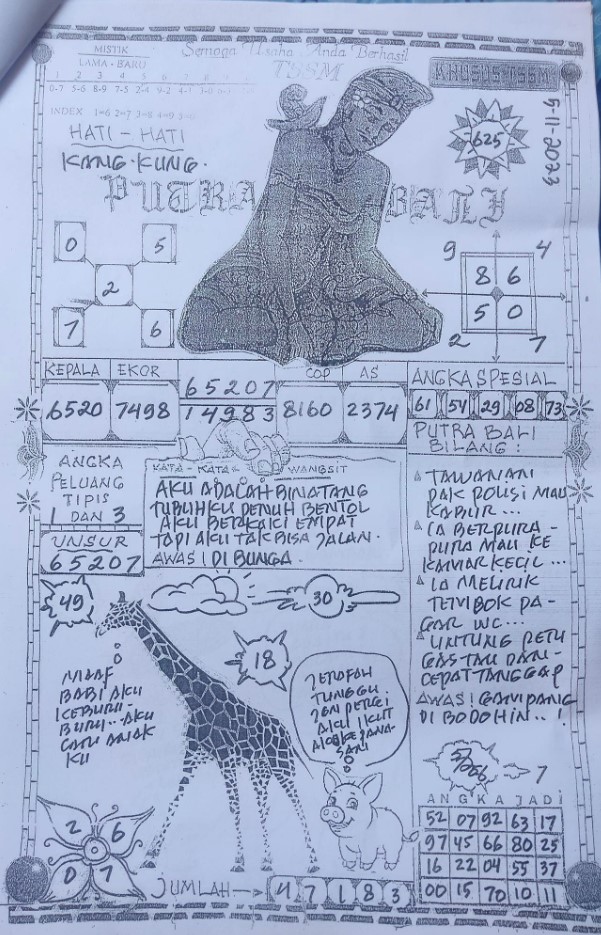 MISTIK
LAMA - BARU
Semoga Usaha Anda Berhasil
TSSM
KHUSUS TSSM
1 2 3 4 5 6
0-7 5-6 8-9 7-5 2-4 9-2
INDEX 1=6 2=7 3=8 4=9
HATI - HATI
KANG-KUNG.
PUTRA BALI
625
5-11-2023
0 5
2
7 6
9 4
8 6
5 0
2 7
KEPALA EKOR
6520 7498
65207
14983
COP AS
8160 2374
ANGKA SPESIAL
61 54 29 08 73
ANGKA
PELUANG
TIPIS
1 DAN 3
UNSUR
65207
KATA - KATA WANGSIT
AKU ADALAH BINATANG
TUBUHKU PENUH BENTOL
AKU BERKAKI EMPAT
TAPI AKU TAK BISA JALAN.
AWAS! DI BUNGA.
PUTRA BALI
BILANG:
TAWANAN
PAK POLISI MAU
KABUR...
IA BERPURA-
PURA MAU KE
KAMAR KECIL...
IA MELIRIK
TEMBOK PA-
GAR WC...
UNTUNG PETU
GAS TAU DAN
CEPAT TANGGAP
AWAS! GAMPANG
DI BODOHIN..!
49
30
18
MAAF
BABI AKU
KEBURU-
BURU... AKU
CARI ANAK
KU
JEROFAH
TUNGGU
JGN PERGI
AKU IKUT
7
ANGKA JADI
52 07 92 63 17
97 45 66 80 25
16 22 04 55 37
00 15 70 10 11
2 6
0 7
JUMLAH 4 7 1 8 3